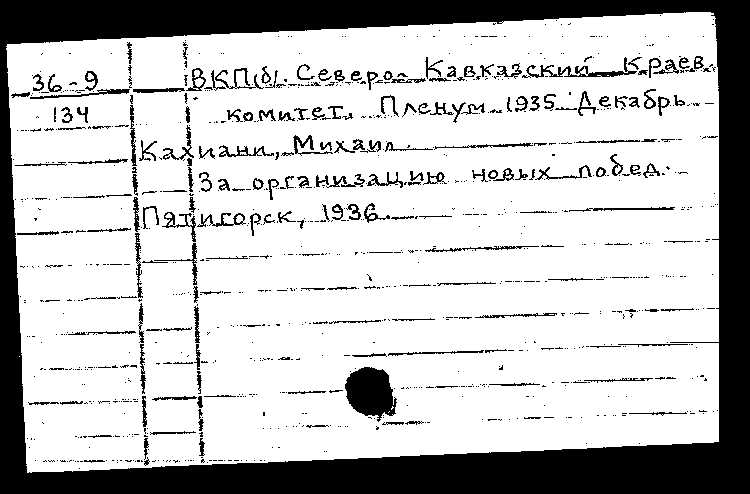 36-9 ВКП(б). Северо- Кавказский Краев.
134 комитет. Пленум 1935 Декабрь
Кахиани, Михаил.
За организацию новых побед.
Пятигорск, 1936.